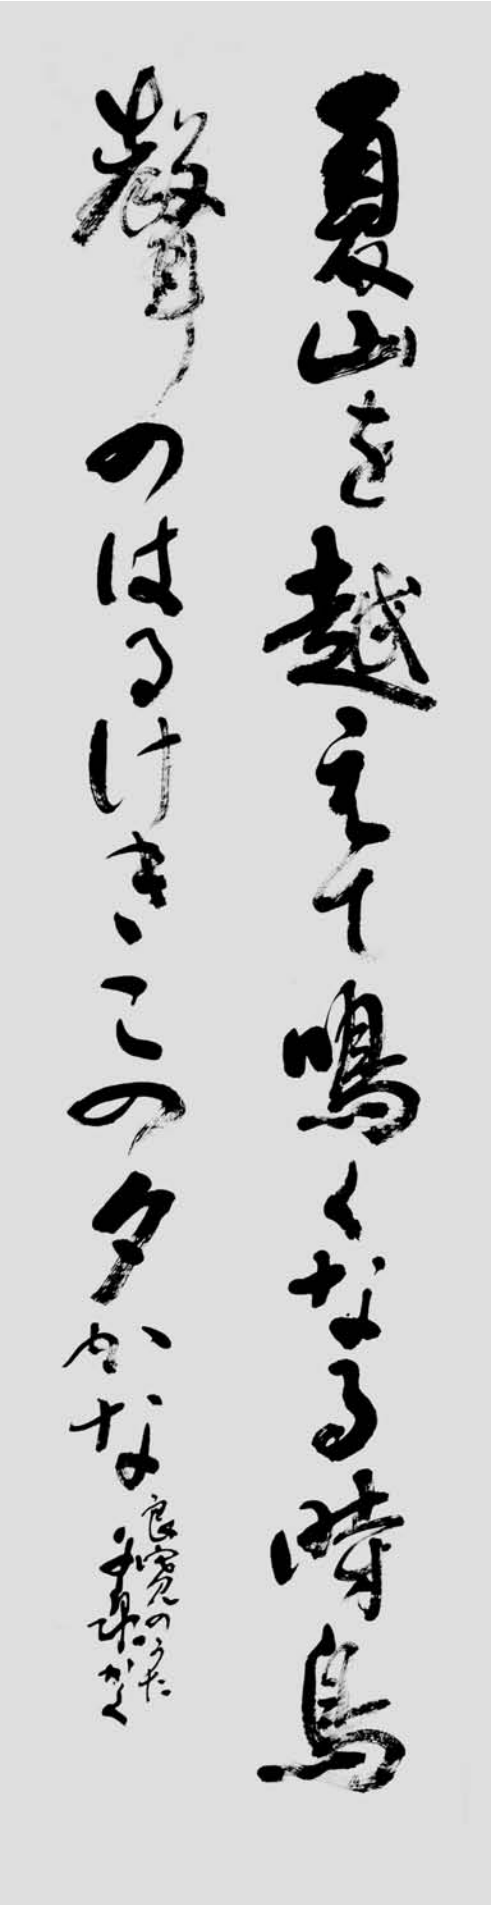 夏山を越えて鳴くなる時鳥
聲のはるけきこの夕かな
良寛のうた
かく